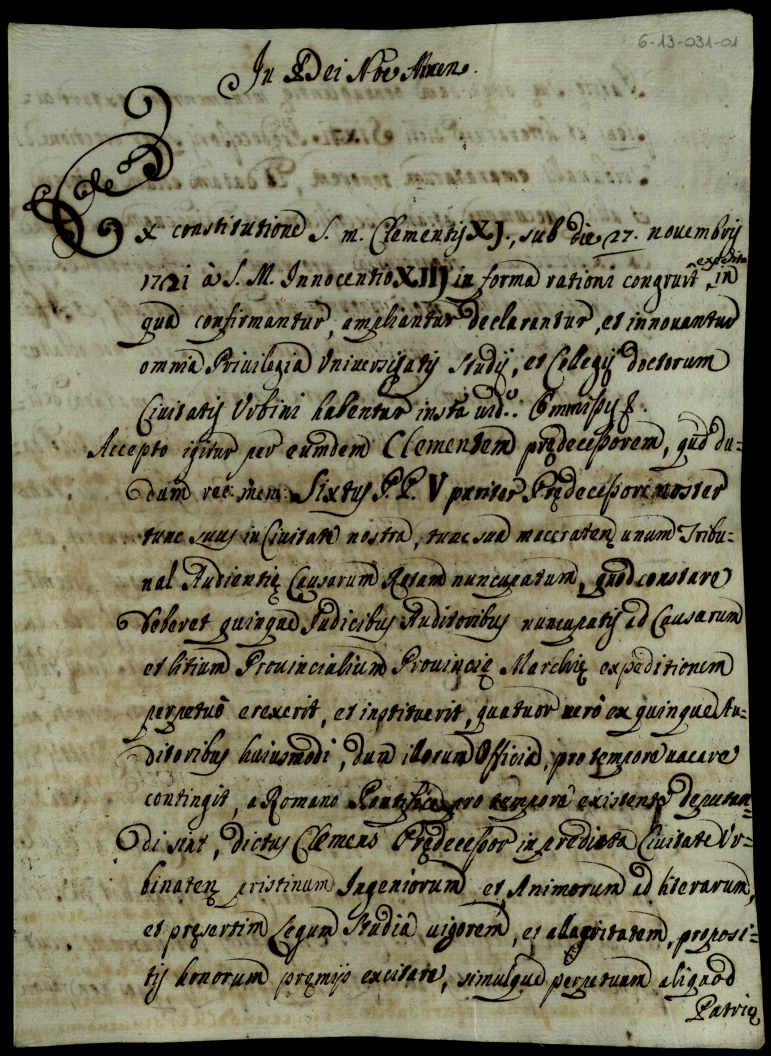 6-13-031-01
In Dei Noe Amen.
Ex constitutione S. m. Clementis XJ., sub die 27. novembris
1721 à S. M. Innocentio XIIJ in forma rationi congruit expedita in
qua confirmantur, ampliantur declarantur, et innovantur
omnia Privilegia Universitatis Studij, et Collegij doctorum
Civitatis Urbini habentur
Accepto igitur per eumdem Clementem prędecessorem, qūd du-
dum rec: mem: Sixtus P.P. V pariter Prędecessor noster
tunc suus in Civitate nostra, tunc sua maceraten unum Tribu-
nal Audientię Causarum Rotam nuncupatum, quod constare
Deberet quinque Judicibus Auditoribus nuncupatis ad Causarum
et litium Provincialium Provincię Marchię expeditionem
perpetuò erexerit, et instituerit, quatuor verò ex quinque Au-
ditoribus huiusmodi, dum illorum Officia, pro tempore vacare
contingit, a Romano Pontifice pro tempore existente deputan-
di sint, dictus Clemens Prędecessor in predicta Civitate Ur-
binaten pristinum Ingeniorum et Animorum ad literarum,
et pręsertim Legum Studia vigorem, et allagritatem, proposi-
tis honorum pręmijs excitare, simulque perpetuum aliquod
Patrię